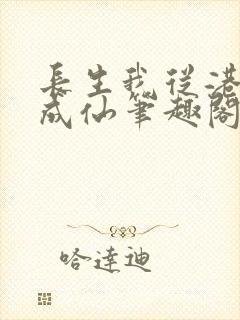 長生我從港
成仙筆趣閣
哈達迪